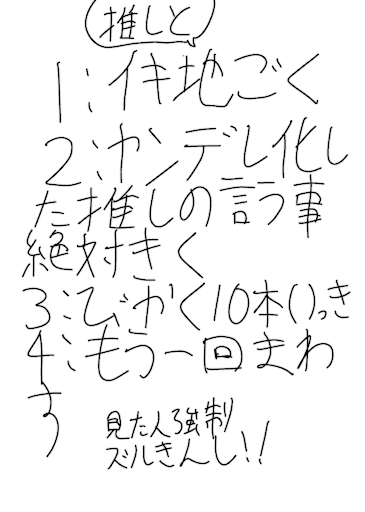 推しと
1:イキ地ごく
2:ヤンデレ化し
た推しの言う事
絶対きく
3:びやく10本()っき
4:もう一回まわ
す
見た人強制
ズルきんし!!